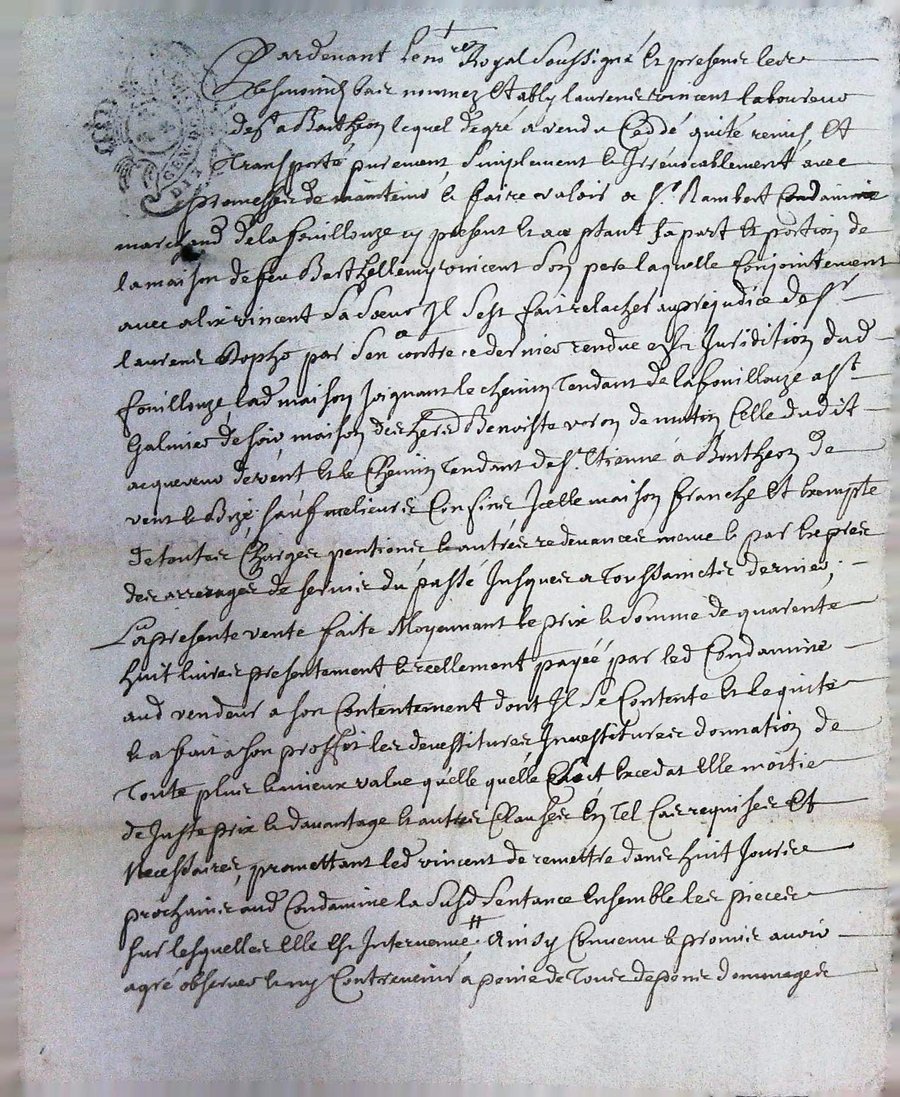 Pardevant le no.re Royal Soussigné Et presens les
tesmoins bas nommez Estably laurens vincent laboureur
de St a Bontheon lequel de gré a vendu Ceddé quité remis Et
Transporté purement Simplement & Irrévocablement avec
promesse de maintenir & faire valoir a Sr Rambert Condamine
marchand de la fouillouze cy present & acceptant Sa part & portion de
la maison de feu Barthellemy vincent Son pere laquelle Conjointement
avec alix vincent Sa Sœur Il S'est fait relacher au prejudice de Sr
laurens par Sen.ce contre ce dernier rendue en la Juridition dud
fouillouze, lad maison Joignant le chemin Tendant de la fouillouze a St
Galmier de soir maison des hers Benoiste voron de matin Celle dudit
acquereur de vent Et le Chemin Tendant de St Etienne à Bontheon de
vent & Bize Sauf melieures Confins Icelle maison franche Et Exempte
de toutes Charges pentions & autres redevances mesme & par Exprés
des arrerages de servis du passé Jusques a Toussaincts dernier,
La presente vente faite Moyennant le prix & Somme de quarente
huit livres presentement & reellement payéé par led Condamine
aud vendeur a son Contentement dont Il Se Contente & le quite
& a fait a son proffit les devestitures Investitures donnation de
Toute plus & mieux value qu'elle quélle Soit Excedat Elle moitie
de Juste prix & davantage & autres Clauses En Tel Cas requises Et
Necessaires, promettant led vincent de remettre dans huit Jours
prochains aud Condamine la Susd Sentance Ensemble les pieces
sur lesquelles Elle est Intervenue # Ainsy Convenu & promis avoir
agré observer & ny Contrevenir, a peine de Tous depens dommages
GEN
DIX